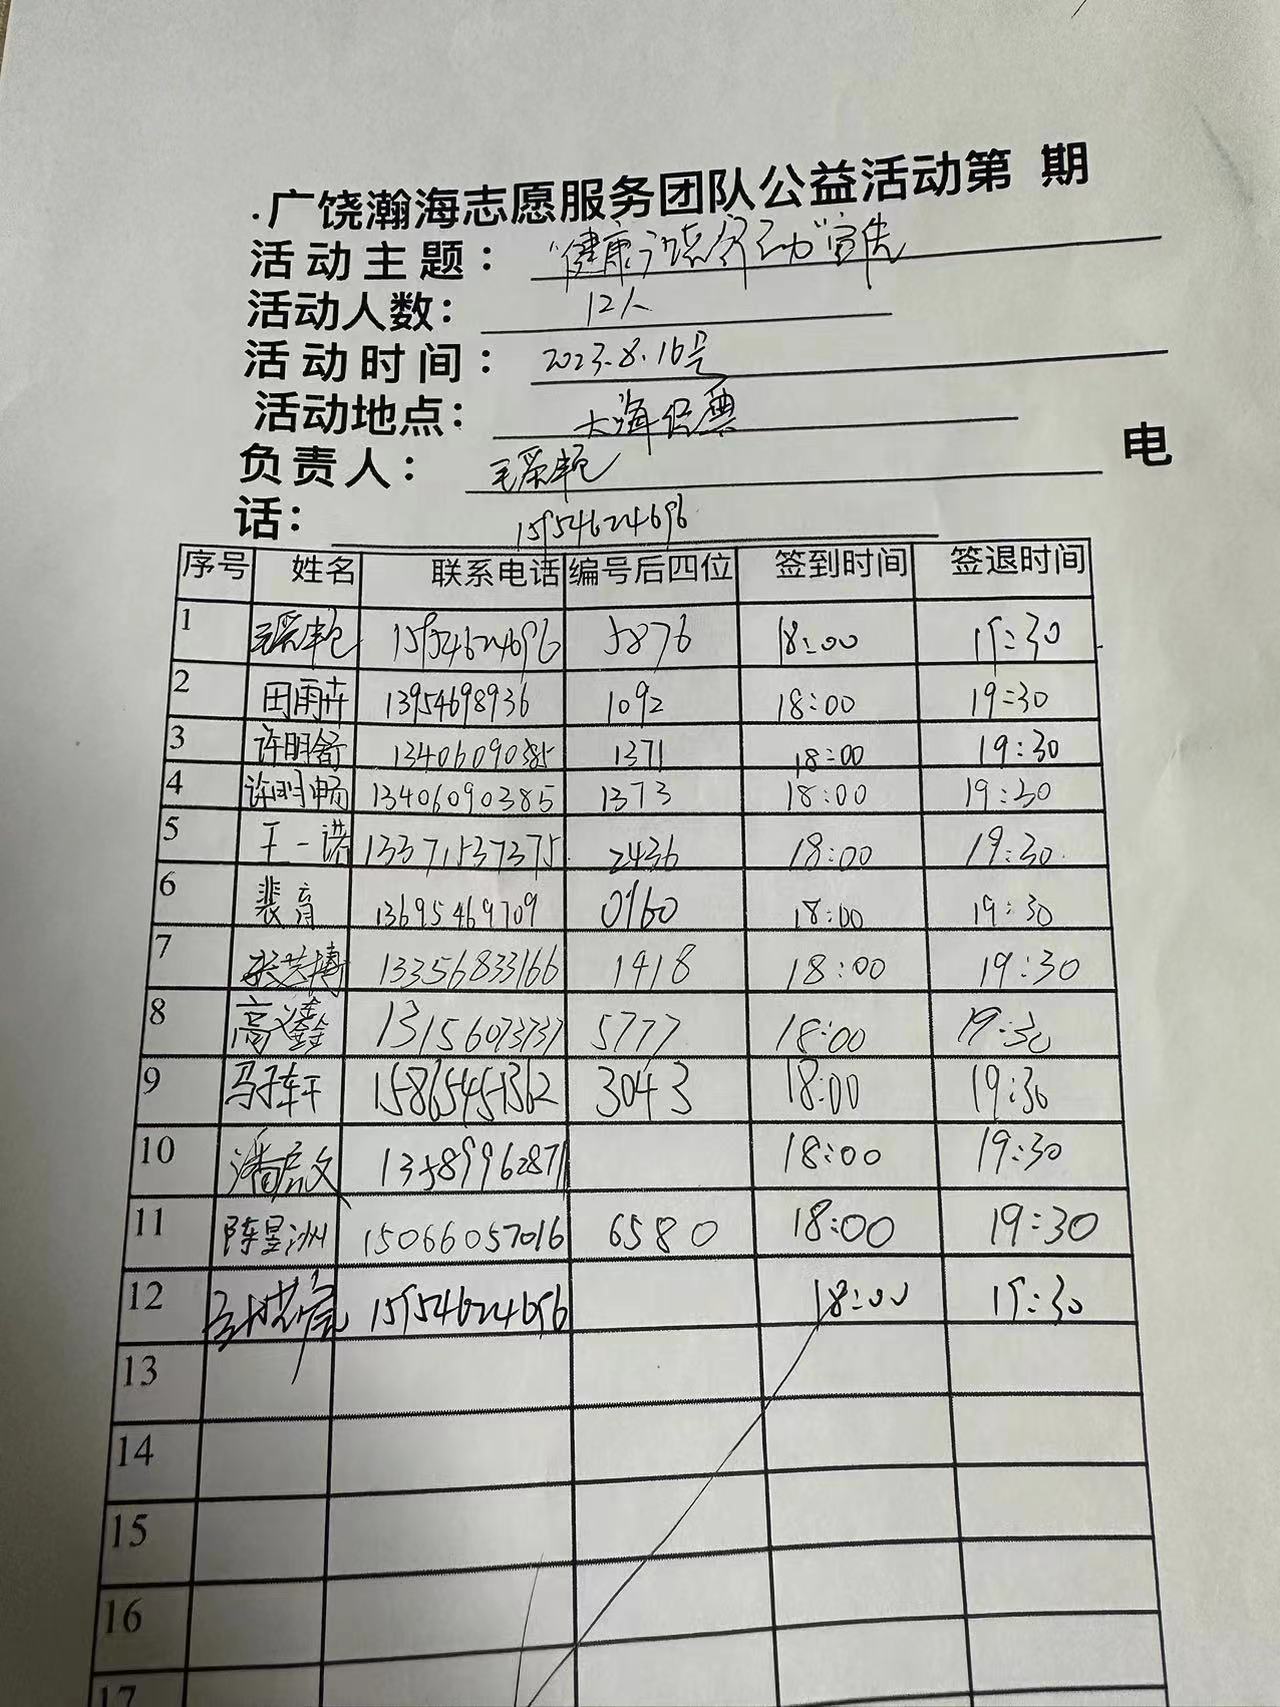 .广饶瀚海志愿服务团队公益活动第 期
活动主题： "健康 动"宣传
活动人数： 12人
活动时间： 2023.8.16号
活动地点： 大海
负责人： 电
话： 15954624696
序号 姓名 联系电话 编号后四位 签到时间 签退时间
1 15954624696 5876 18:00 19:30
2 田雨卉 13954698936 1092 18:00 19:30
3 许明舒 13406090385 1371 18:00 19:30
4 许明畅 13406090385 1373 18:00 19:30
5 王一诺 13371537375 2436 18:00 19:30
6 裴育 13695469709 0160 18:00 19:30
7 张艺博 13356833166 1418 18:00 19:30
8 高义鑫 13156073737 5777 18:00 19:30
9 马子轩 15865451362 3043 18:00 19:30
10 潘启文 13589962871 18:00 19:30
11 陈昱洲 15066057016 6580 18:00 19:30
12 15954624696 18:00 19:30
13
14
15
16
17